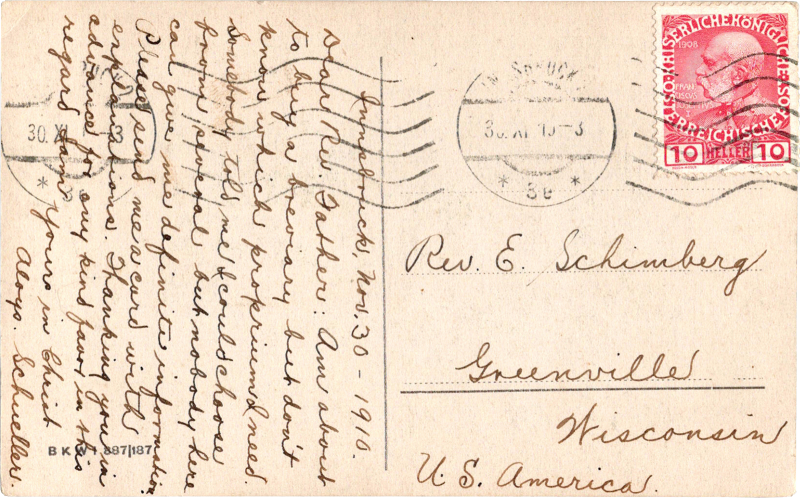 Innsbruck, Nov. 30 - 1910.
Dear Rev. Father: Am about
to buy a breviary but don't
know which proprium I need.
Somebody told me I could choose
from several but nobody here
can give me definite information.
Please send me a card with
explanations. Thanking you in
advance for any kind favor in this
regard I am
Yours in Christ
Aloys. Schueller.
BKW I 897/187
30. XI
3
INNSBRUCK
30. XI 10-3
* 3e *
K.K. ÖSTERREICHISCHE POST
KAISERLICHE KÖNIGLICHE
1908
FRAN
10 HELLER 10
Rev. E. Schimberg
Greenville
Wisconsin
U. S. America.